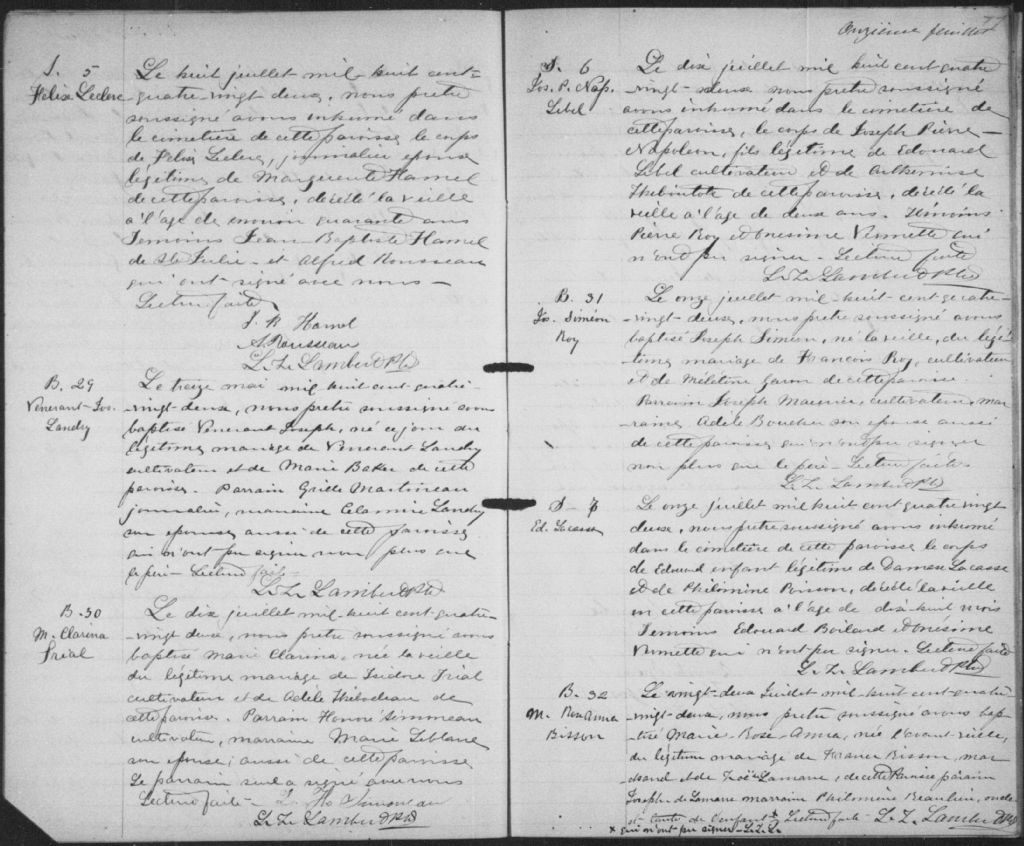 S. 5
Félix Leclerc
Le huit juillet mil-huit cent-
quatre-vingt deux, nous prêtre
soussigné avons inhumé dans
le cimetière de cette paroisse le corps
de Félix Leclerc, journalier époux
légitime de Marguerite Hamel
de cette paroisse, décédé la veille
à l'âge de environ quarante ans
Temoins Jean-Baptiste Hamel
de Ste Julie - et Alfred Rousseau
qui ont signé avec nous -
Lecture faite
J. B Hamel
A. Rousseau
L. Z. Lambert Ptre
B. 29
Vénérant-Jos.
Landry
Le treize mai mil huit cent quatre-
vingt-deux, nous prêtre soussigné avons
baptisé Vénérant Joseph, né ce jour du
légitime mariage de Vénérant Landry
cultivateur et de Marie Baker de cette
paroisse. Parrain Martineau
journalier, marraine Célamire Landry
son épouse, aussi de cette paroisse
qui n'ont pu signer non plus que
le père - Lecture faite -
L. Z. Lambert Ptre
B. 30
M. Clarina
Trial
Le dix juillet mil-huit cent-quatre-
vingt deux, nous prêtre soussigné avons
baptisé Marie Clarina, née la veille
du légitime mariage de Isidore Trial
cultivateur et de Adèle Thibodeau de
cette paroisse. Parrain Honoré Simoneau
cultivateur, marraine Marie Leblanc
son épouse, aussi de cette paroisse.
Le parrain seul a signé avec nous
Lecture faite - Simoneau
L. Z. Lambert Ptre
Onzième feuillet
S. 6
Jos. P. Nap.
Lebel
Le dix juillet mil huit cent quatre
-vingt-deux nous prêtre soussigné
avons inhumé dans le cimetière de
cette paroisse, le corps de Joseph Pierre-
Napoléon, fils légitime de Edouard
Lebel cultivateur et de Arthémise
de cette paroisse, décédé la
veille à l'âge de deux ans. Témoins
Pierre Roy et Onésime Vermette qui
n'ont pu signer. Lecture faite
L. Z. Lambert Ptre
B. 31
Jos. Siméon
Roy
Le onze juillet mil-huit-cent-quatre-
vingt-deux, nous prêtre soussigné avons
baptisé Joseph Siméon, né la veille, du légi-
time mariage de François Roy, cultivateur
et de Mélétine Garon de cette paroisse.
Parrain Joseph cultivateur, mar-
raine Adèle Boucher son épouse aussi
de cette paroisse qui n'ont pu signer
non plus que le père - Lecture faite
L. Z. Lambert Ptre
S - 7
Ed. Lacasse
Le onze juillet mil huit cent quatre vingt
deux, nous prêtre soussigné avons inhumé
dans le cimetière de cette paroisse le corps
de Edouard enfant légitime de Damase Lacasse
et de Philomène Poisson, décédé la veille
en cette paroisse à l'âge de dix-huit mois
Temoins Edouard Boilard et Onésime
Vermette qui n'ont pu signer. Lecture faite
L. Z. Lambert Ptre
B. 32
M. Rose Anna
Bisson
Le vingt-deux Juillet mil-huit-cent quatre
-vingt-deux, nous prêtre soussigné avons bap-
tisé Marie-Rose-Anna, née l'avant-veille,
du légitime mariage de Bisson, mar-
chand et de Zoé Lamarre, de cette Paroisse parain
Joseph de Lamarre marraine Philomène Beaulieu, oncle
et tante de l'enfant x Lecture faite - L. Z. Lambert Ptre
x qui n'ont pu signer - L. Z. L.